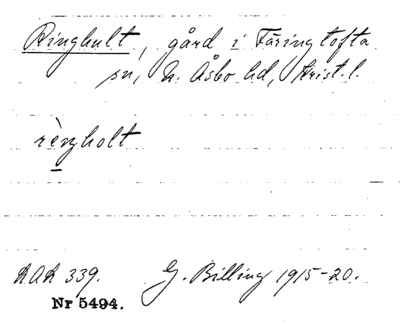 Ringhult, gård i Färingtofta
sn, N. Åsbo hd, Krist. l.
rèŋholt
LAL 339. G. Billing 1915-20.
Nr 5494.